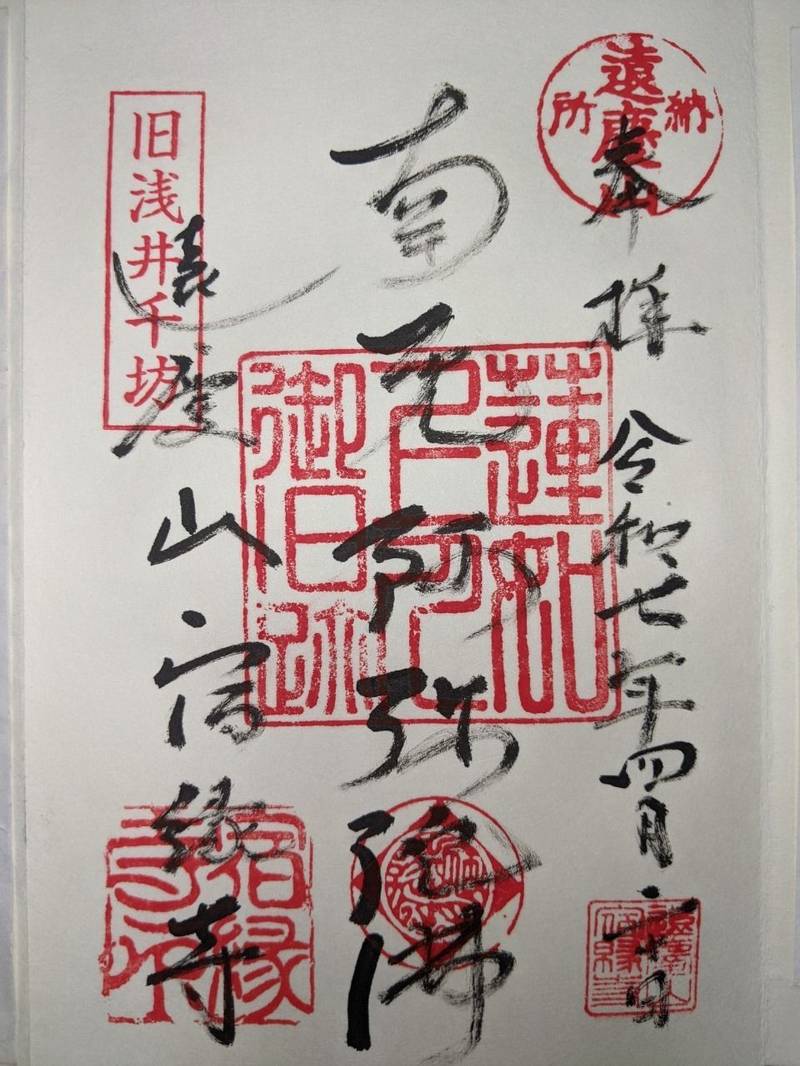 遠慶山
納所
奉拝 令和七年四月二十日
南无阿弥陀佛
蓮如
上人
御旧跡
旧浅井千坊
遠慶山宿縁寺
宿縁
寺印